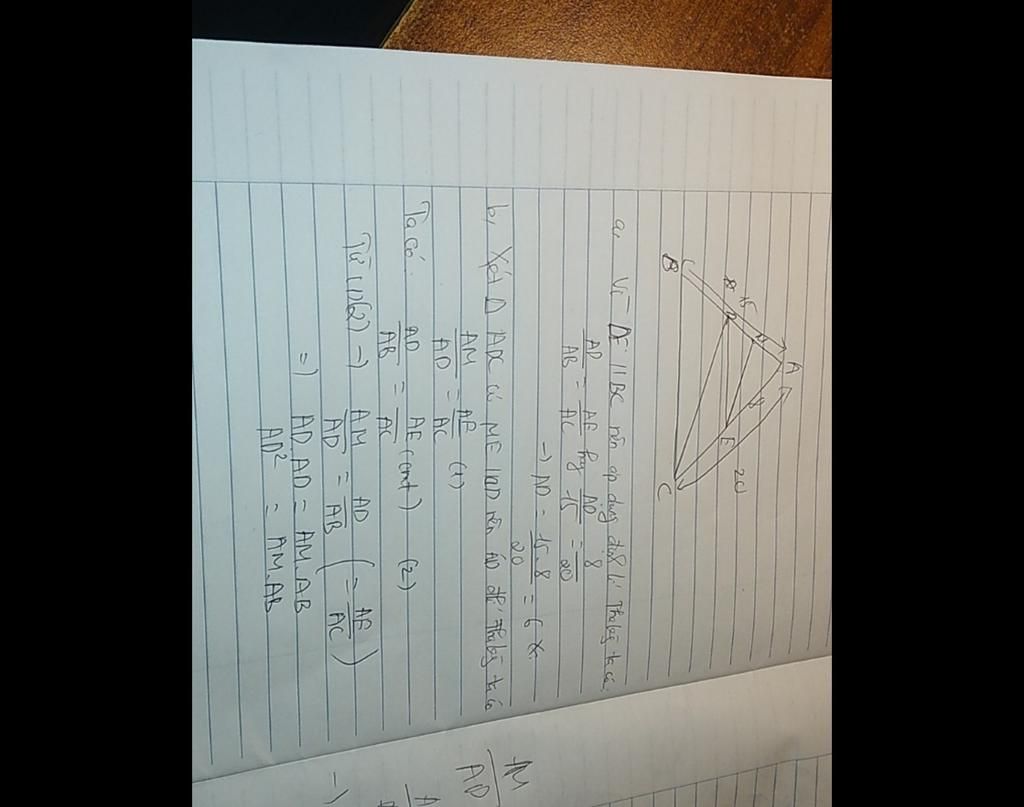 A
M
15
D
8
E
20
B
C
a, Vì DE // BC nên áp dụng định lí Thalès ta có:
AD/AB = AE/AC hay AD/15 = 8/20
→ AD = 15.8/20 = 6
b, Xét Δ ADC có ME // CD nên AD đlí Thalès ta có
AM/AD = AE/AC (1)
Ta có: AD/AB = AE/AC (cmt) (2)
Từ (1)(2) → AM/AD = AD/AB (= AE/AC)
=) AD.AD = AM.AB
AD² = AM.AB
AD
→